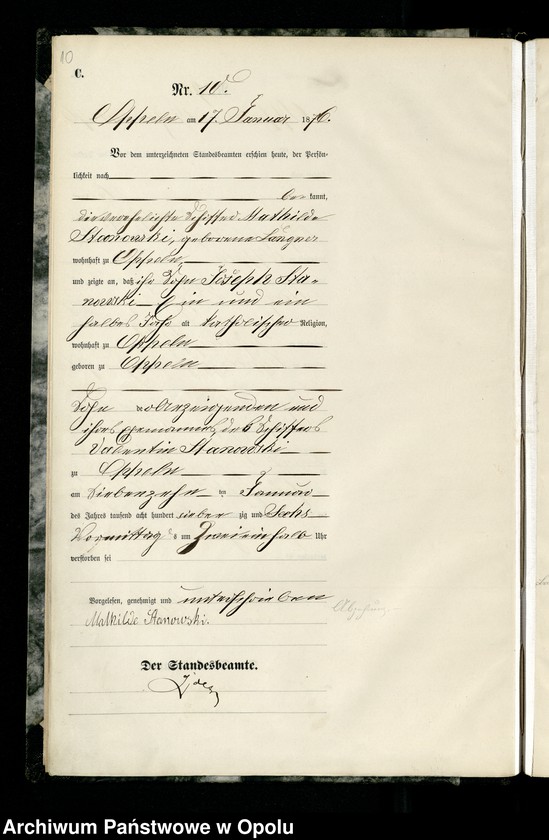 10
C.
Nr. 10.
Oppeln am 17. Januar 1876.
Vor dem unterzeichneten Standesbeamten erschien heute, der Persön-
lichkeit nach
be kannt,
die verehelichte Schiffer Mathilde
Stanowski, geborene Langner
wohnhaft zu Oppeln
und zeigte an, daß ihr Sohn Joseph Sta-
nowski Ein und ein
halbes Jahr alt katholischer Religion,
wohnhaft zu Oppeln
geboren zu Oppeln
Sohn der Anzeigenden und
ihres Ehemannes des Schiffers
Valentin Stanowski
zu Oppeln
am Siebenzehn ten Januar
des Jahres tausend acht hundert sieben zig und Sechs
Vormittags um Zwei ein halb Uhr
verstorben sei
Vorgelesen, genehmigt und unterschrieben
Mathilde Stanowski.
Der Standesbeamte.
Archiwum Państwowe w Opolu